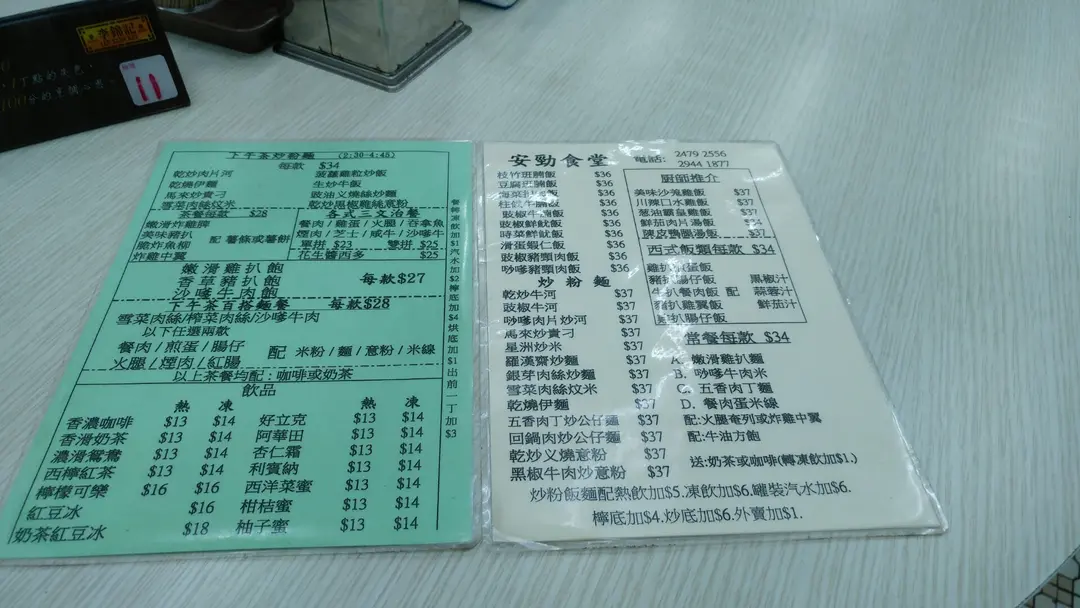 李錦記
下午茶炒粉麵 (2:30-4:45)
每款 $34
乾炒肉片河 菠蘿雞粒炒飯
乾燒伊麵 生炒牛飯
馬來炒貴刁 豉油义燒絲炒麵
雪菜肉絲炆米 乾炒黑椒雞絲意粉
茶餐每款 $28
嫩滑炸雞脾
美味豬扒
脆炸魚柳
炸雞中翼
配 薯條或薯餅
各式三文治餐
餐肉/雞蛋/火腿/吞拿魚
煙肉/芝士/咸牛/沙嗲牛
單拼 $23 雙拼 $25
花生醬西多 $25
嫩滑雞扒飽
香草豬扒飽 每款$27
沙嗲牛肉飽
下午茶百搭麵餐 每款$28
雪菜肉絲/榨菜肉絲/沙嗲牛肉
以下任選兩款
餐肉/煎蛋/腸仔
火腿/煙肉/紅腸
配 米粉/麵/意粉/米線
以上茶餐均配:咖啡或奶茶
飲品
熱 凍 熱 凍
香濃咖啡 $13 $14 好立克 $13 $14
香滑奶茶 $13 $14 阿華田 $13 $14
濃滑鴛鴦 $13 $14 杏仁霜 $13 $14
西檸紅茶 $13 $14 利賓納 $13 $14
檸檬可樂 $16 $16 西洋菜蜜 $13 $14
紅豆冰 $16 柑桔蜜 $13 $14
奶茶紅豆冰 $18 柚子蜜 $13 $14
餐轉凍飲加$1汽水加$2檸底加$4烘底加$1出前一丁加$3
安勁食堂
電話: 2479 2556
2944 1877
枝竹班腩飯 $36
豆腐班腩飯 $36
海菜班腩飯 $36
柱侯牛腩飯 $36
豉椒牛腩飯 $36
豉椒鮮魷飯 $36
時菜鮮魷飯 $36
滑蛋蝦仁飯 $36
豉椒豬頸肉飯 $36
吵嗲豬頸肉飯 $36
炒粉麵
乾炒牛河 $37
豉椒牛河 $37
吵嗲肉片炒河 $37
馬來炒貴刁 $37
星洲炒米 $37
羅漢齋炒麵 $37
銀芽肉絲炒麵 $37
雪菜肉絲炆米 $37
乾燒伊麵 $37
五香肉丁炒公仔麵 $37
回鍋肉炒公仔麵 $37
乾炒义燒意粉 $37
黑椒牛肉炒意粉 $37
廚師推介
美味沙嗲雞飯 $37
川辣口水雞飯 $37
蔥油霸皇雞飯 $37
鮮茄肉片湯飯 $37
陳皮鴨腿湯飯 $37
西式飯類每款 $34
豬扒腸仔飯 黑椒汁
牛扒餐肉飯 配 蒜蓉汁
豬扒雞翼飯 鮮茄汁
常餐每款 $34
A. 嫩滑雞扒麵
B. 吵嗲牛肉米
C. 五香肉丁麵
D. 餐肉蛋米線
配:火腿奄列或炸雞中翼
配:牛油方飽
送:奶茶或咖啡(轉凍飲加$1.)
炒粉飯麵配熱飲加$5.凍飲加$6.罐裝汽水加$6.
檸底加$4.炒底加$6.外賣加$1.